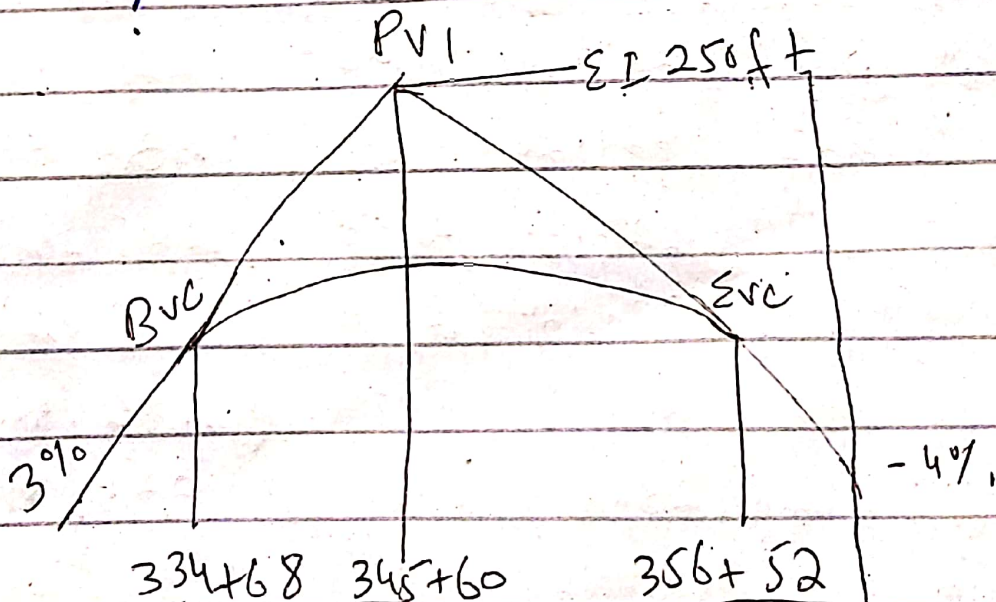 PVI
EI 250ft
BVC
EVC
3%
- 4%
334+68 345+60 356+52